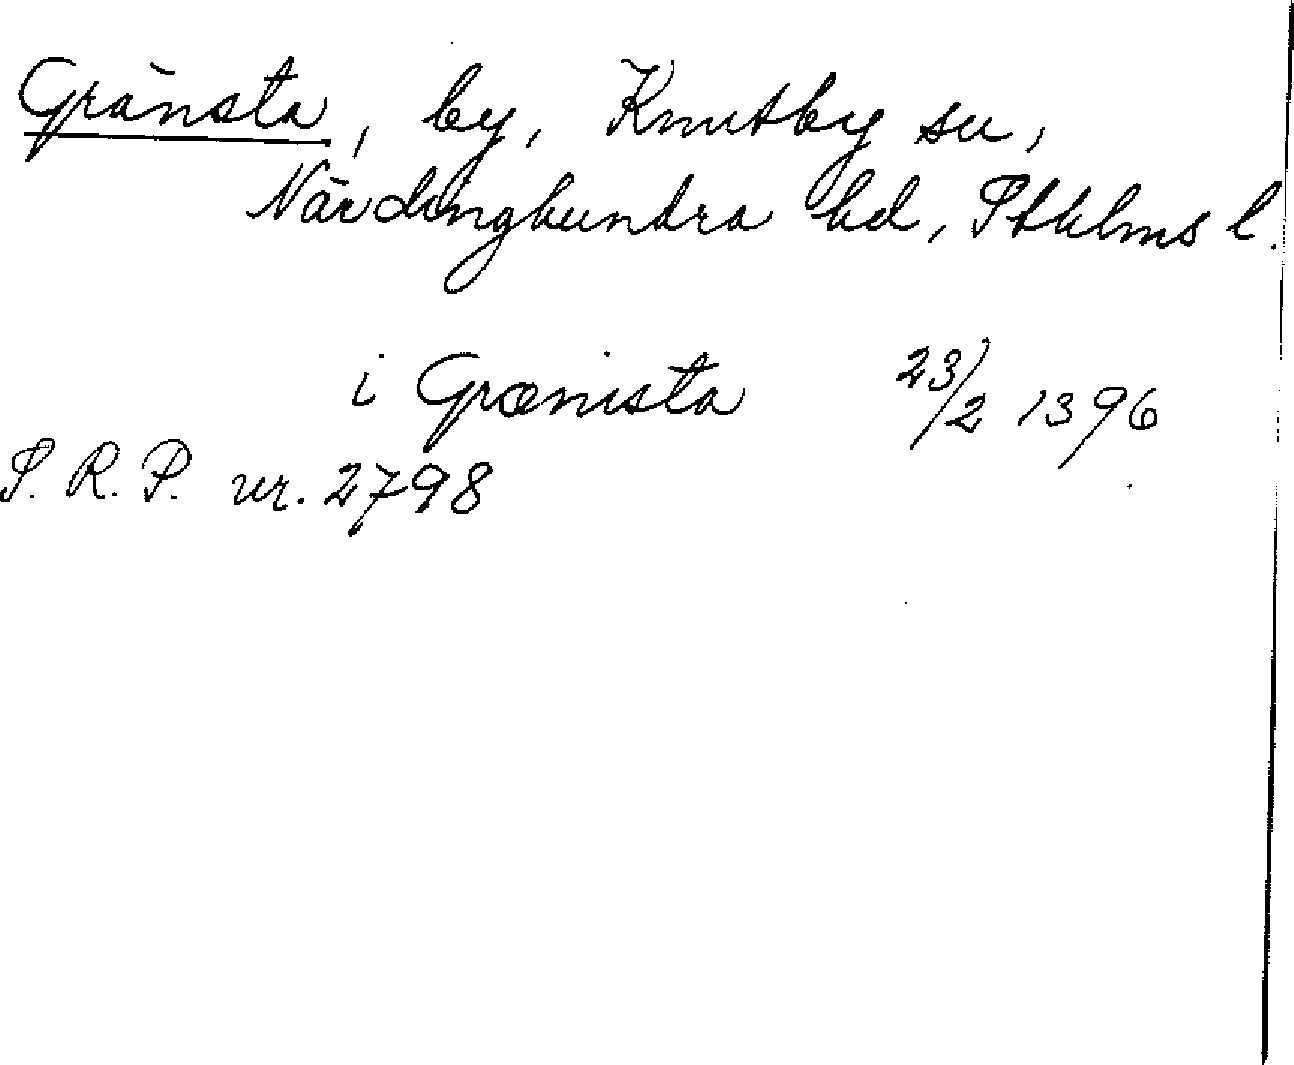 Gränsta, by, Knutby sn,
Närdinghundra hd, Sthlms l.
i Grænista 23/2 1396
S. R. P. nr. 2798